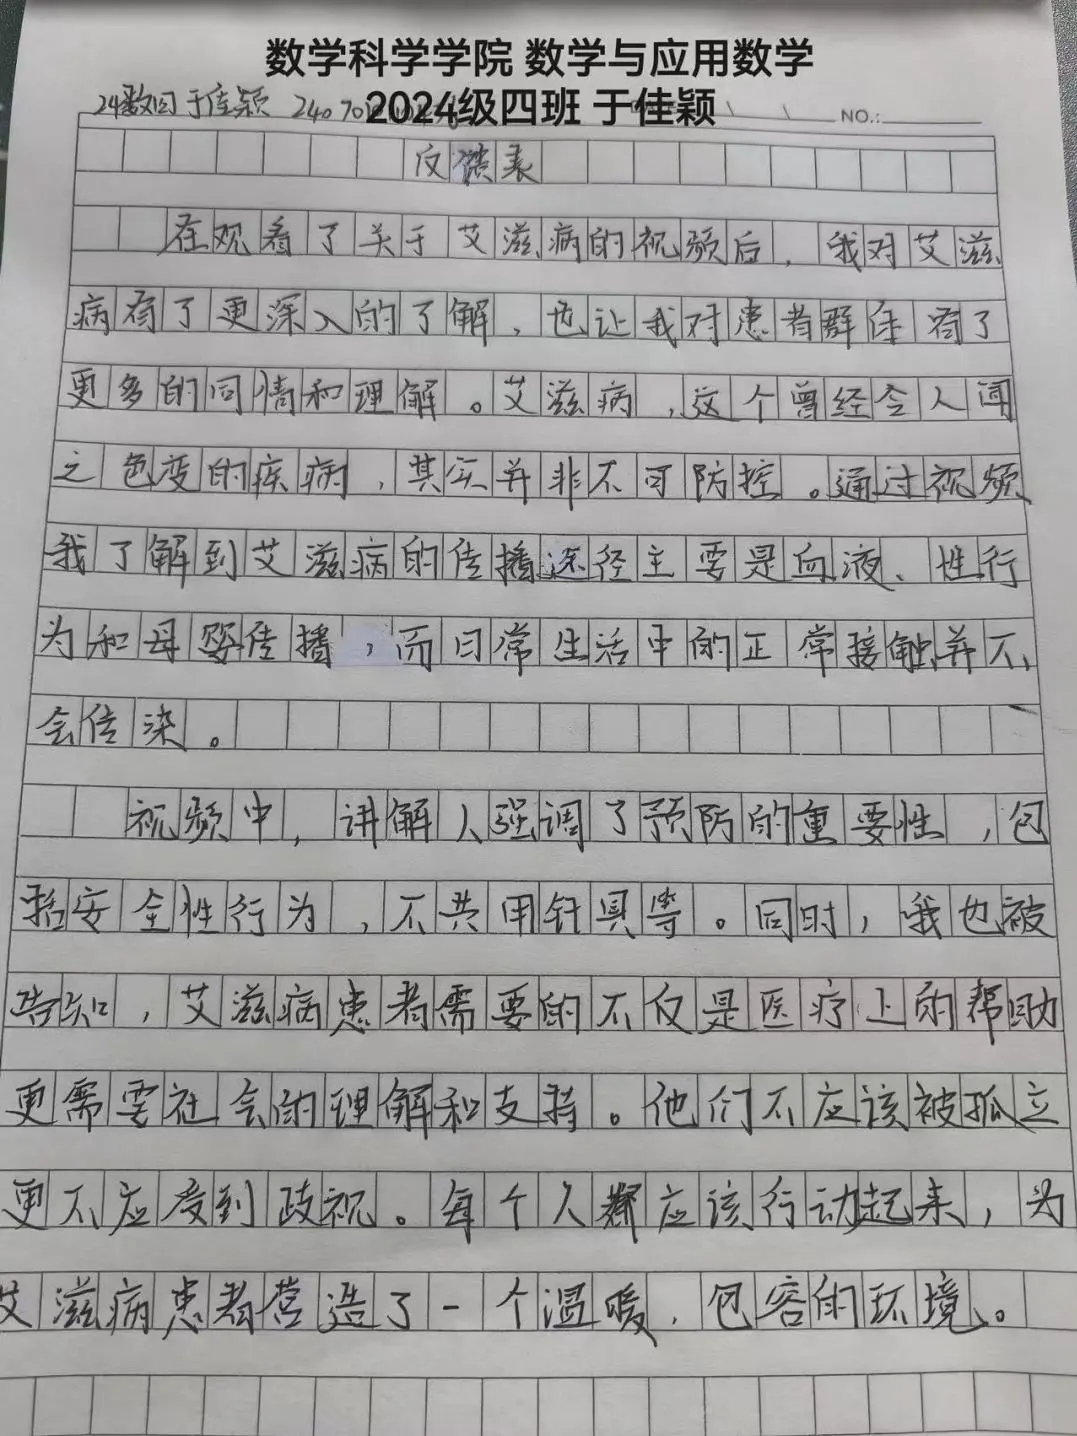 数学科学学院 数学与应用数学
2024级四班 于佳颖
24数四于佳颖 240701
NO.:
反馈表
在观看了关于艾滋病的视频后，我对艾滋
病有了更深入的了解，也让我对患者群体有了
更多的同情和理解。艾滋病，这个曾经令人闻
之色变的疾病，其实并非不可防控。通过视频
我了解到艾滋病的传播途径主要是血液、性行
为和母婴传播，而日常生活中的正常接触并不
会传染。
视频中，讲解人强调了预防的重要性，包
括安全性行为，不共用针具等。同时，我也被
告知，艾滋病患者需要的不仅是医疗上的帮助
更需要社会的理解和支持。他们不应该被孤立
更不应受到歧视。每个人都应该行动起来，为
艾滋病患者营造了一个温暖，包容的环境。